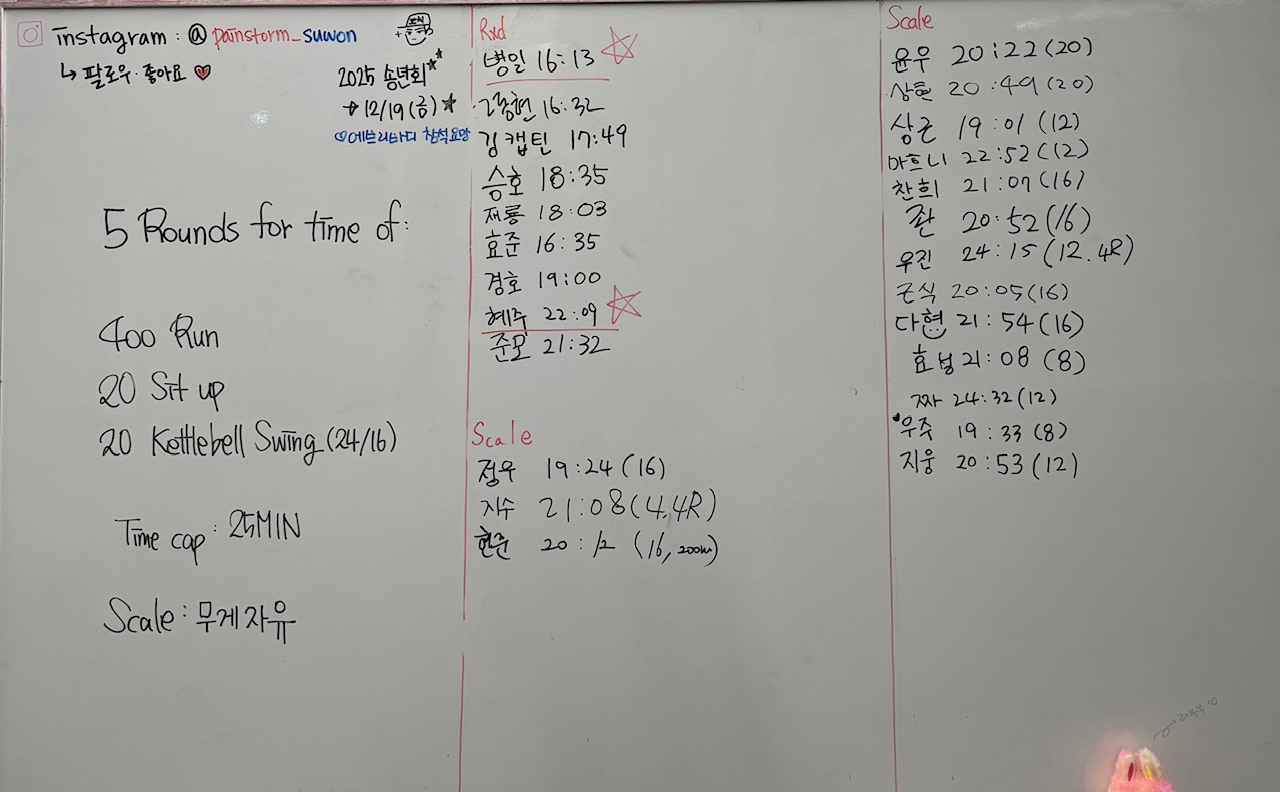 instagram : @ painstorm_suwon
↳ 팔로우·좋아요
2025 송년회
→ 12/19 (금)
♡에브리바디 참석요망
5 Rounds for time of:
400 Run
20 Sit up
20 Kettlebell Swing (24/16)
Time cap : 25MIN
Scale : 무게자유
Rxd
병일 16:13
고종현 16:32
김캡틴 17:49
승호 18:35
재룡 18:03
효준 16:35
경호 19:00
혜주 22:09
준모 21:32
Scale
정우 19:24 (16)
지수 21:08 (4, 4R)
현준 20:12 (16, 200m)
Scale
윤우 20:22 (20)
상현 20:49 (20)
상근 19:01 (12)
마흐니 22:52 (12)
찬희 21:07 (16)
좐 20:52 (16)
우진 24:15 (12. 4R)
근식 20:05 (16)
다현 21:54 (16)
효성 21:08 (8)
짜 24:32 (12)
우주 19:33 (8)
지웅 20:53 (12)